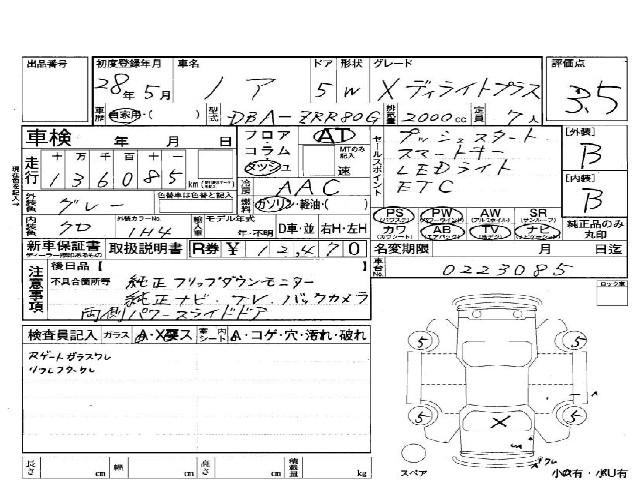 出品番号
初度登録年月
28年5月
車名
ノア
ドア
5
形状
W
グレード
X ディライトプラス
評価点
3.5
車歴
自家用・( )
型式
DBA-ZRR80G
排気量
2000cc
定員
7人
車検
年 月 日
フロア・コラム
ダッシュ
AT
MTのみ記入
速
セールスポイント
プッシュスタート
スマートキー
LEDライト
ETC
[外装]
B
[内装]
B
走行
十万千百十一
136085 km
冷房
AAC
燃料
ガソリン・軽油・( )
外装色
グレー
色替車は色替と記入
内装色
クロ
外装カラーNo.
1H4
輸入車
モデル年式
年・不明
D車・並
右H・左H
PS
PW
AW
SR
カワ
AB
TV
ナビ
純正品のみ丸印
新車保証書
取扱説明書
R券
¥12,470
名変期限
月
日迄
車台No.
0223085
後日品【 】
注意事項
不具合箇所等
純正フリップダウンモニター
純正ナビ・TV・バックカメラ
両側パワースライドドア
ロック車
検査員記入
ガラス
A・X要ス
室内シート
A・コゲ・穴・汚れ・破れ
Rゲートガラスワレ
リフレクターワレ
5
5
5
5
X
ワレ
スペア
小凹有・小U有
長さ
cm
幅
cm
高さ
cm
積載量
kg